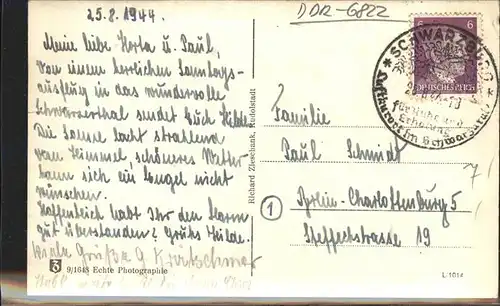 25.8.1944.
DDR-6822
Meine liebe Herta u. Paul,
von einem herrlichen Sonntags-
ausflug in das wundervolle
Schwarzatal sendet Euch Hilde.
Die Sonne lacht strahlend
vom Himmel schöneres Wetter
kann sich ein Engel nicht
wünschen.
Hoffentlich habt Ihr den
gut überstanden? Gruß Hilde.
Grüße
9/1643 Echte Photographie
Richard Zieschank, Rudolstadt
6 6
DEUTSCHES REICH
SCHWARZBURG
für Ruhe und
Erholung
Luftkurort im Schwarzatal
Familie
Paul Schmidt
1 Berlin-Charlottenburg 5
19
7
L 1014